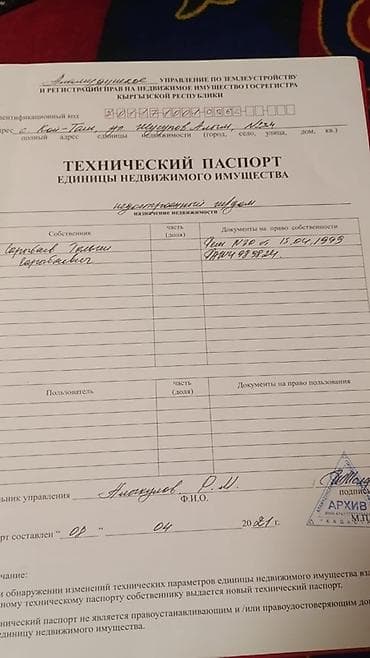 Аламудунское УПРАВЛЕНИЕ ПО ЗЕМЛЕУСТРОЙСТВУ
И РЕГИСТРАЦИИ ПРАВ НА НЕДВИЖИМОЕ ИМУЩЕСТВО ГОСРЕГИСТРА
КЫРГЫЗСКОЙ РЕСПУБЛИКИ
ентификационный код
рес с. Кок-Таш, №24
полный адрес единицы недвижимости (город, село, улица, дом, кв.)
ТЕХНИЧЕСКИЙ ПАСПОРТ
ЕДИНИЦЫ НЕДВИЖИМОГО ИМУЩЕСТВА
недостроенный жил дом
назначение недвижимости
Собственник
часть
(доля)
Документы на право собственности
№20 от 15.04.1999
Пользователь
часть
(доля)
Документы на право пользования
льник управления Р. М.
Ф.И.О.
подпис
М.П.
АРХИВ
рт составлен " 08 " 04 2021 г.
чание:
и обнаружении изменений технических параметров единицы недвижимого имущества вза
ному техническому паспорту собственнику выдается новый технический паспорт.
нический паспорт не является правоустанавливающим и /или правоудостоверяющим до
единицу недвижимого имущества.